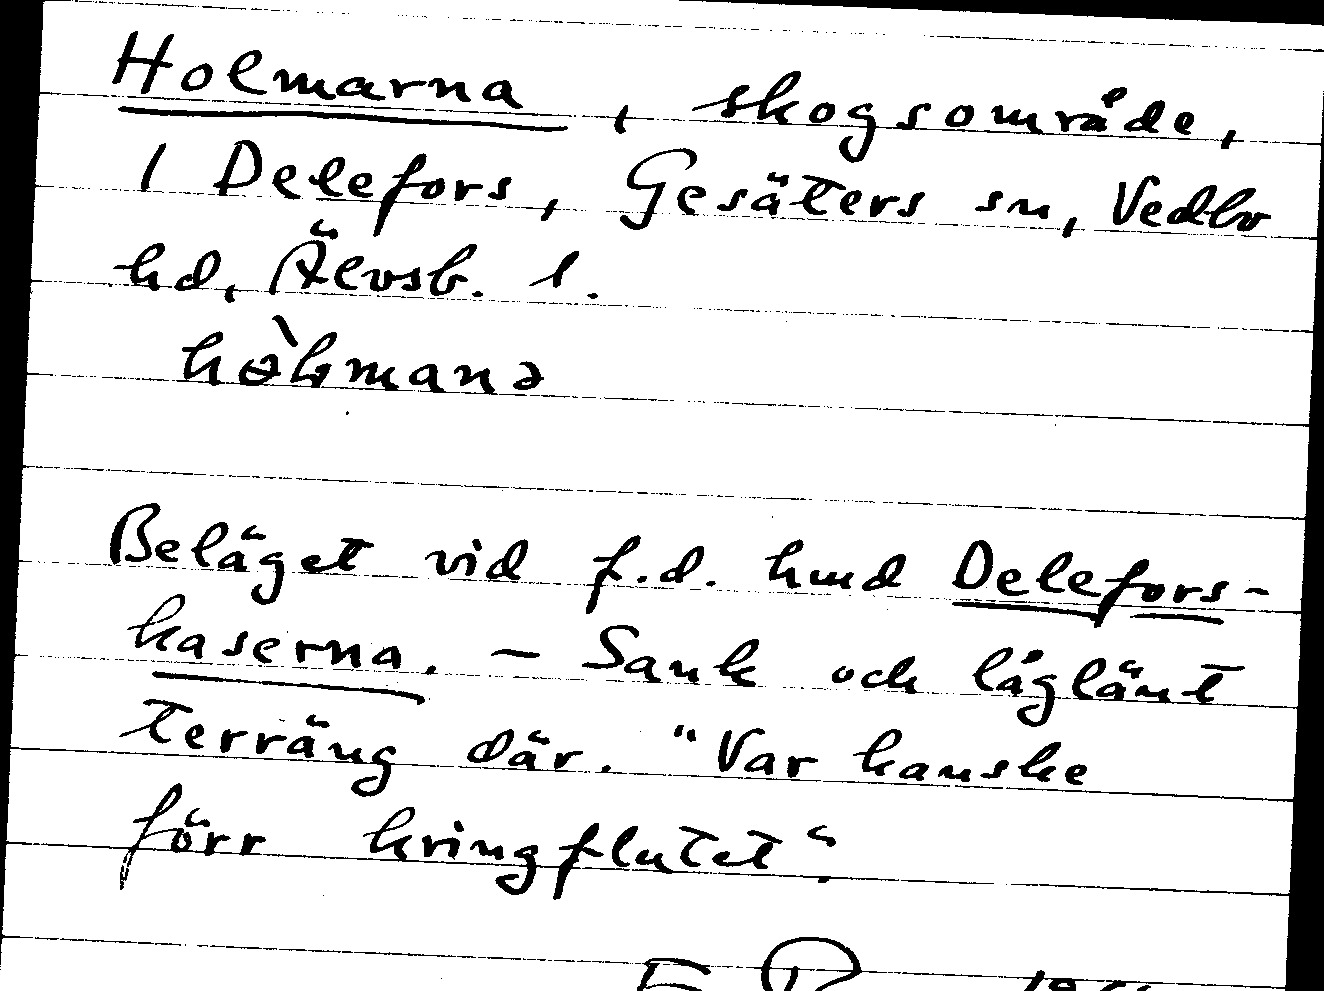 Holmarna, skogsområde,
1 Delefors, Gesäters sn, Vedbo
hd, Älvsb. l.
Beläget vid f.d. hmd Delefors-
kaserna. – Sank och låglänt
terräng där. "Var kanske
förr kringflutet".